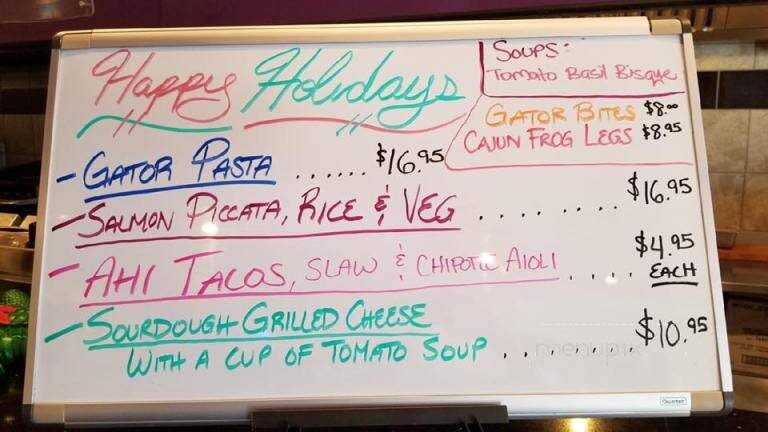 Happy Holidays
Soups:
Tomato Basil Bisque
GATOR BITES $8.00
CAJUN FROG LEGS $8.95
- GATOR PASTA ...... $16.95
- SALMON PICCATA, RICE & VEG ....... $16.95
- AHI TACOS, SLAW & CHIPOTLE AIOLI .... $4.95
EACH
- SOURDOUGH GRILLED CHEESE
WITH A CUP OF TOMATO SOUP ....... $10.95
menupix
Quartet